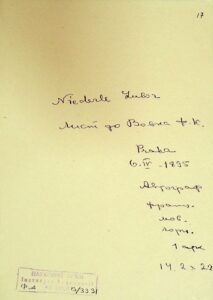 17
Niederle Lubor
Лист до Вовка Ф.К.
Praha
6.IV.1895
Автограф
франц.
мов.
чорн.
1 арк
14.2 × 22
Ф.4